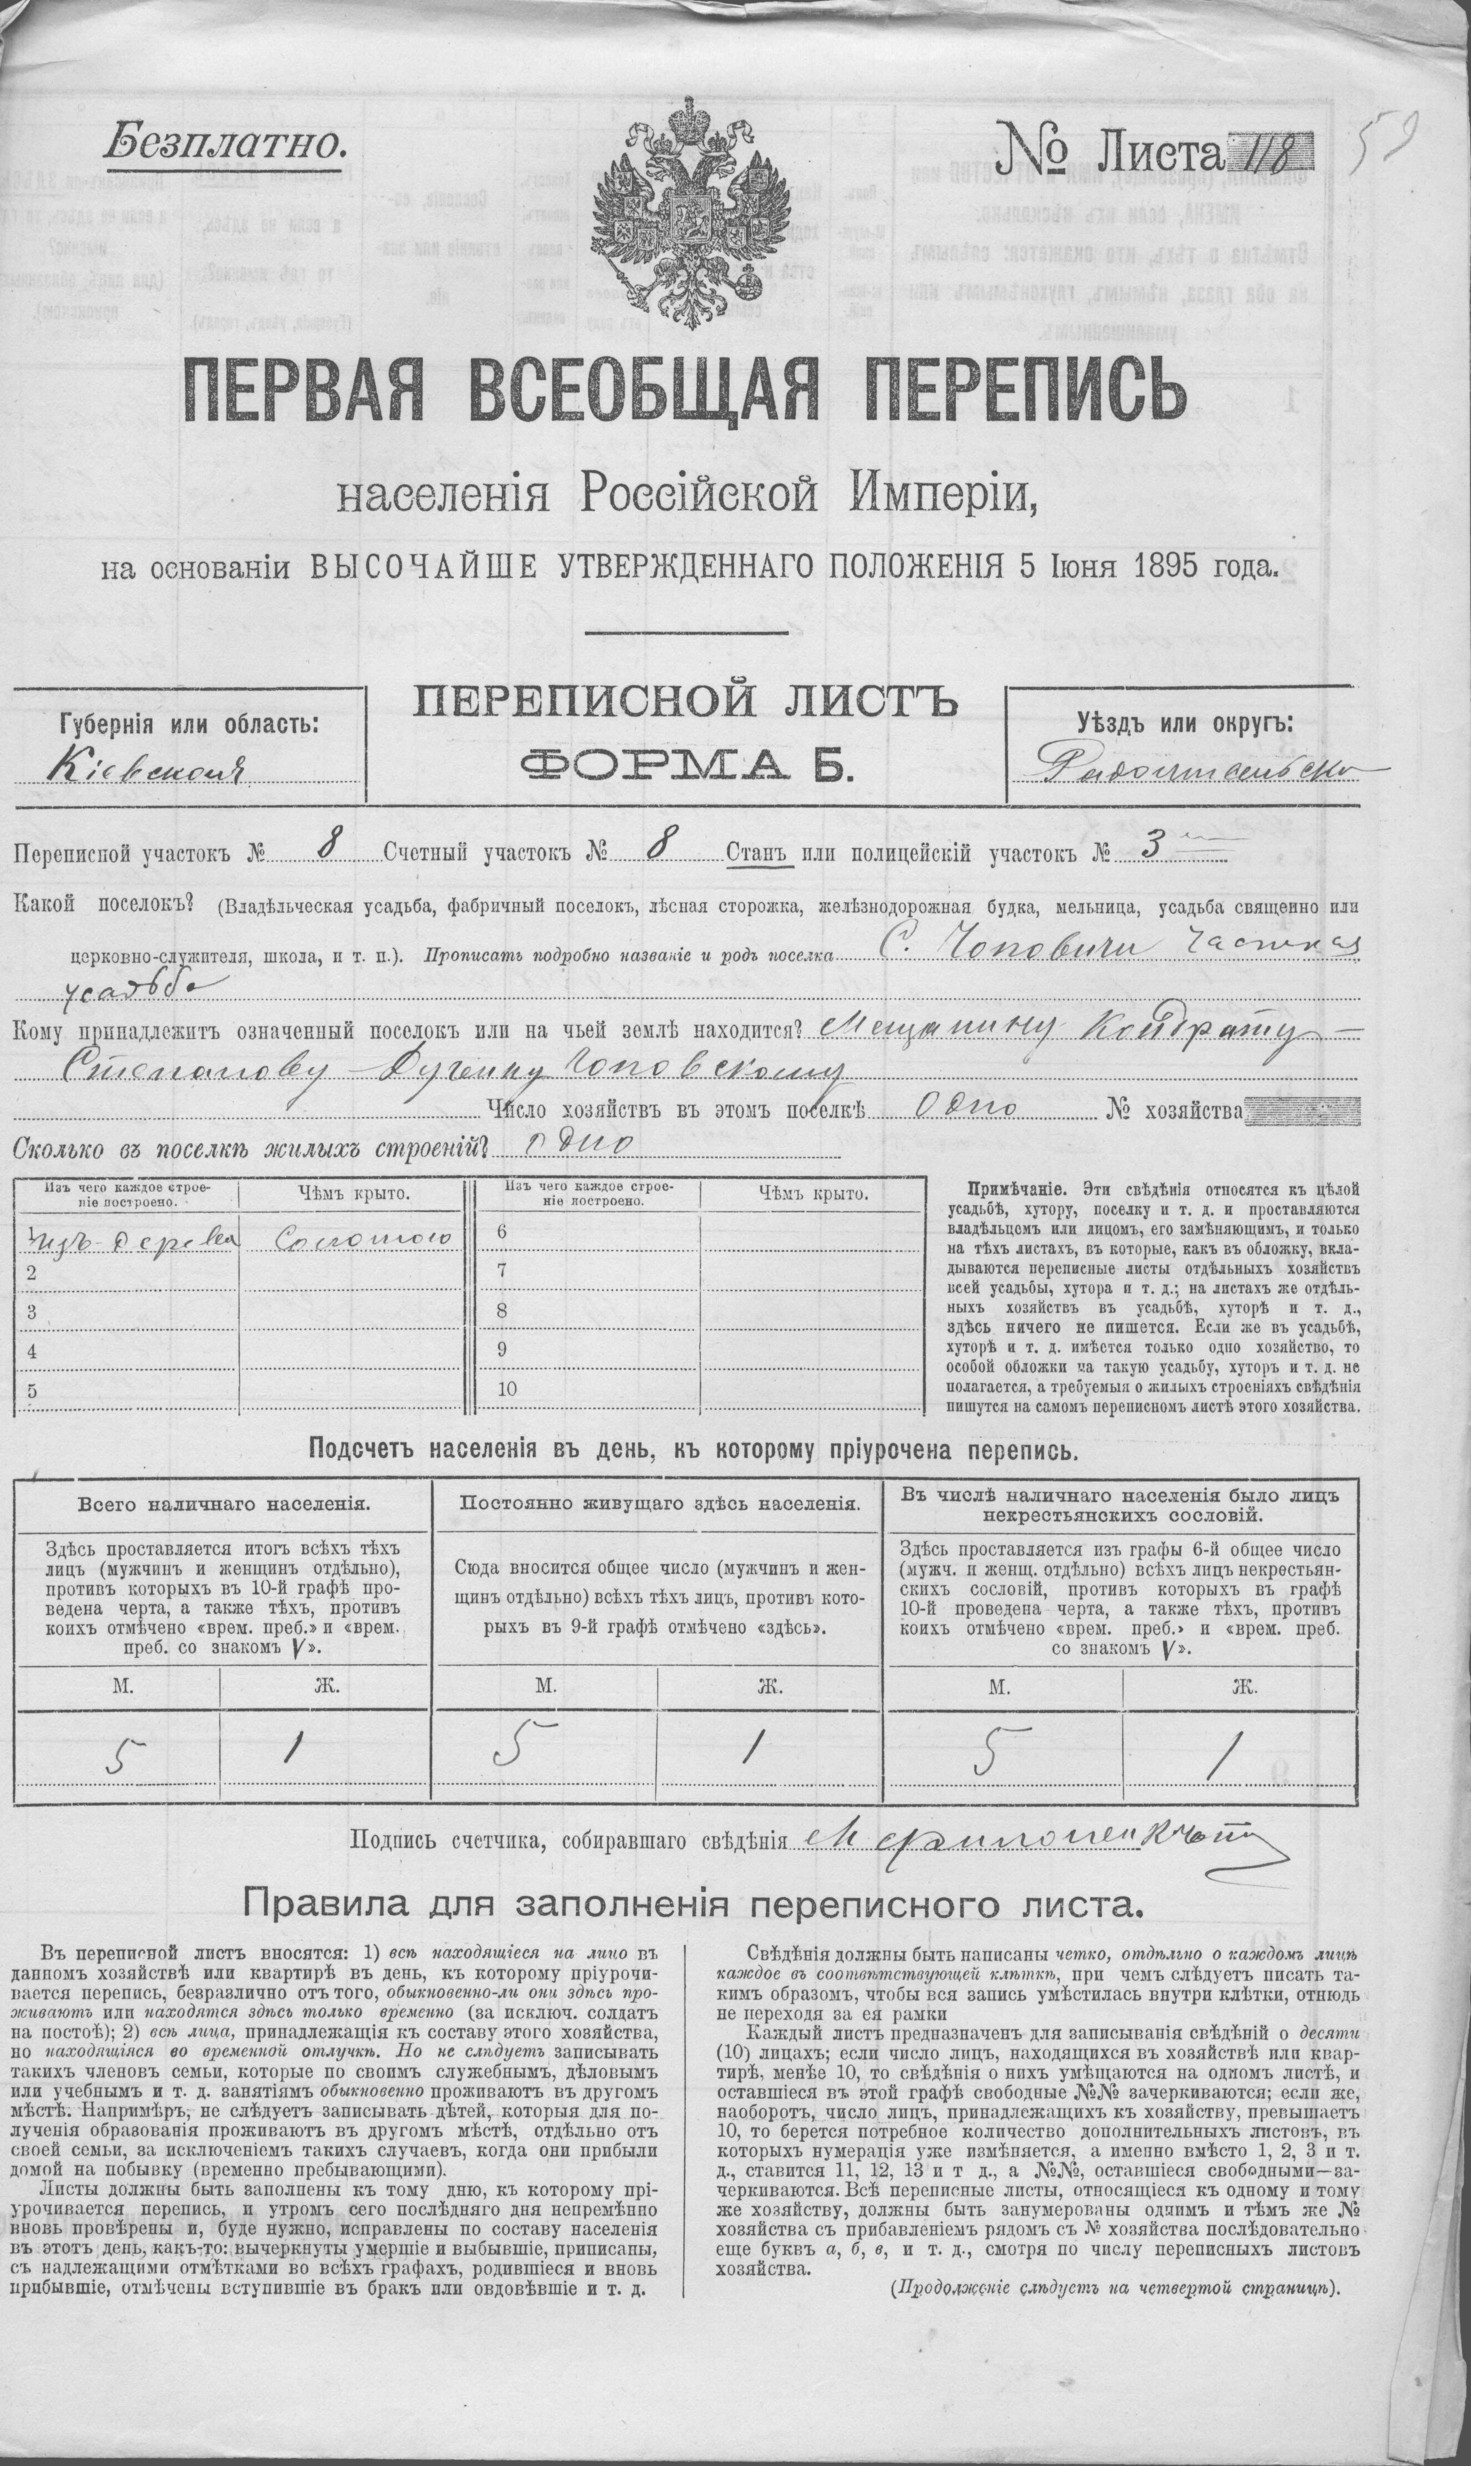 Безплатно.
№ Листа 118
59
ПЕРВАЯ ВСЕОБЩАЯ ПЕРЕПИСЬ
населенія Россійской Имперіи,
на основаніи ВЫСОЧАЙШЕ УТВЕРЖДЕННАГО ПОЛОЖЕНІЯ 5 Іюня 1895 года.
Губернія или область:
Кіевская
ПЕРЕПИСНОЙ ЛИСТЪ
ФОРМА Б.
Уѣздъ или округъ:
Радомысльскій
Переписной участокъ № 8 Счетный участокъ № 8 Станъ или полицейскій участокъ № 3
Какой поселокъ? (Владѣльческая усадьба, фабричный поселокъ, лѣсная сторожка, желѣзнодорожная будка, мельница, усадьба священно или
церковно-служителя, школа, и т. п.). Прописать подробно названіе и родъ поселка С. Чоповичи частная
усадьба
Кому принадлежитъ означенный поселокъ или на чьей землѣ находится? Мещанину Кондрату
Степанову Чоповскому
Число хозяйствъ въ этомъ поселкѣ одно № хозяйства
Сколько въ поселкѣ жилыхъ строеній? одно
Изъ чего каждое строе-
ніе построено.
Чѣмъ крыто.
Изъ чего каждое строе-
ніе построено.
Чѣмъ крыто.
1 изъ дерева соломою 6
2 7
3 8
4 9
5 10
Примѣчаніе. Эти свѣдѣнія относятся къ цѣлой
усадьбѣ, хутору, поселку и т. д. и проставляются
владѣльцемъ или лицомъ, его замѣняющимъ, и только
на тѣхъ листахъ, въ которые, какъ въ обложку, вкла-
дываются переписные листы отдѣльныхъ хозяйствъ
всей усадьбы, хутора и т. д.; на листахъ же отдѣль-
ныхъ хозяйствъ въ усадьбѣ, хуторѣ и т. д.,
здѣсь ничего не пишется. Если же въ усадьбѣ,
хуторѣ и т. д. имѣется только одно хозяйство, то
особой обложки на такую усадьбу, хуторъ и т. д. не
полагается, а требуемыя о жилыхъ строеніяхъ свѣдѣнія
пишутся на самомъ переписномъ листѣ этого хозяйства.
Подсчетъ населенія въ день, къ которому пріурочена перепись.
Всего наличнаго населенія.
Здѣсь проставляется итогъ всѣхъ тѣхъ
лицъ (мужчинъ и женщинъ отдѣльно),
противъ которыхъ въ 10-й графѣ про-
ведена черта, а также тѣхъ, противъ
коихъ отмѣчено «врем. преб.» и «врем.
преб. со знакомъ V».
Постоянно живущаго здѣсь населенія.
Сюда вносится общее число (мужчинъ и жен-
щинъ отдѣльно) всѣхъ тѣхъ лицъ, противъ кото-
рыхъ въ 9-й графѣ отмѣчено «здѣсь».
Въ числѣ наличнаго населенія было лицъ
некрестьянскихъ сословій.
Здѣсь проставляется изъ графы 6-й общее число
(мужч. и женщ. отдѣльно) всѣхъ лицъ некрестьян-
скихъ сословій, противъ которыхъ въ графѣ
10-й проведена черта, а также тѣхъ, противъ
коихъ отмѣчено «врем. преб.» и «врем. преб.
со знакомъ V».
М. Ж. М. Ж. М. Ж.
5 1 5 1 5 1
Подпись счетчика, собиравшаго свѣдѣнія
Правила для заполненія переписного листа.
Въ переписной листъ вносятся: 1) всѣ находящіеся на лицо въ
данномъ хозяйствѣ или квартирѣ въ день, къ которому пріурочи-
вается перепись, безразлично отъ того, обыкновенно-ли они здѣсь про-
живаютъ или находятся здѣсь только временно (за исключ. солдатъ
на постоѣ); 2) всѣ лица, принадлежащія къ составу этого хозяйства,
но находящіяся во временной отлучкѣ. Но не слѣдуетъ записывать
такихъ членовъ семьи, которые по своимъ служебнымъ, дѣловымъ
или учебнымъ и т. д. занятіямъ обыкновенно проживаютъ въ другомъ
мѣстѣ. Напримѣръ, не слѣдуетъ записывать дѣтей, которыя для по-
лученія образованія проживаютъ въ другомъ мѣстѣ, отдѣльно отъ
своей семьи, за исключеніемъ такихъ случаевъ, когда они прибыли
домой на побывку (временно пребывающими).
Листы должны быть заполнены къ тому дню, къ которому прі-
урочивается перепись, и утромъ сего послѣдняго дня непремѣнно
вновь провѣрены и, буде нужно, исправлены по составу населенія
въ этотъ день, какъ-то: вычеркнуты умершіе и выбывшіе, приписаны,
съ надлежащими отмѣтками во всѣхъ графахъ, родившіеся и вновь
прибывшіе, отмѣчены вступившіе въ бракъ или овдовѣвшіе и т. д.
Свѣдѣнія должны быть написаны четко, отдѣльно о каждомъ лицѣ
каждое въ соотвѣтствующей клѣткѣ, при чемъ слѣдуетъ писать та-
кимъ образомъ, чтобы вся запись умѣстилась внутри клѣтки, отнюдь
не переходя за ея рамки
Каждый листъ предназначенъ для записыванія свѣдѣній о десяти
(10) лицахъ; если число лицъ, находящихся въ хозяйствѣ или квар-
тирѣ, менѣе 10, то свѣдѣнія о нихъ умѣщаются на одномъ листѣ, и
оставшіеся въ этой графѣ свободные №№ зачеркиваются; если же,
наоборотъ, число лицъ, принадлежащихъ къ хозяйству, превышаетъ
10, то берется потребное количество дополнительныхъ листовъ, въ
которыхъ нумерація уже измѣняется, а именно вмѣсто 1, 2, 3 и т.
д., ставится 11, 12, 13 и т д., а №№, оставшіеся свободными—за-
черкиваются. Всѣ переписные листы, относящіеся къ одному и тому
же хозяйству, должны быть занумерованы однимъ и тѣмъ же №
хозяйства съ прибавленіемъ рядомъ съ № хозяйства послѣдовательно
еще буквъ а, б, в, и т. д., смотря по числу переписныхъ листовъ
хозяйства.
(Продолженіе слѣдуетъ на четвертой страницѣ).